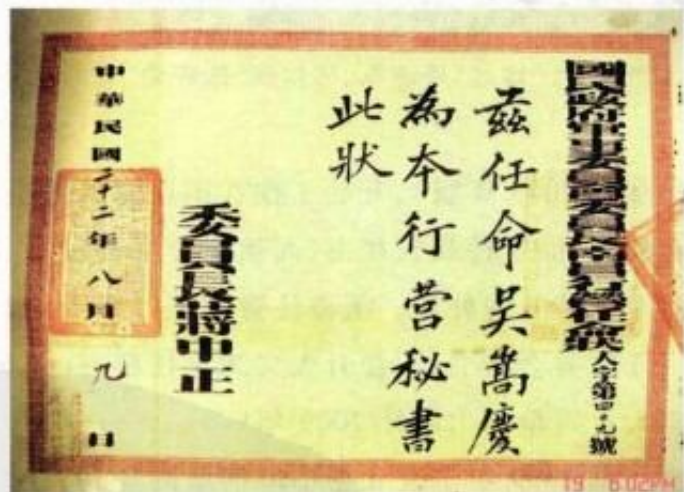 國民政府軍事委員會委員長南昌行營任命狀人字第四十九號
茲任命吳嵩慶
為本行營秘書
此狀
委員長蔣中正
中華民國二十二年八月九日